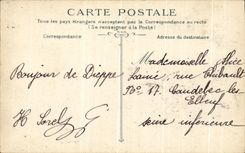 CARTE POSTALE
Tous les pays étrangers n'acceptent pas la Correspondance au recto
(Se renseigner à la Poste)
Correspondance
Adresse du destinataire
Bonjour de Dieppe
Mademoiselle Alice
rue Thibault
Caudebec les
Elbeuf
Seine inférieure